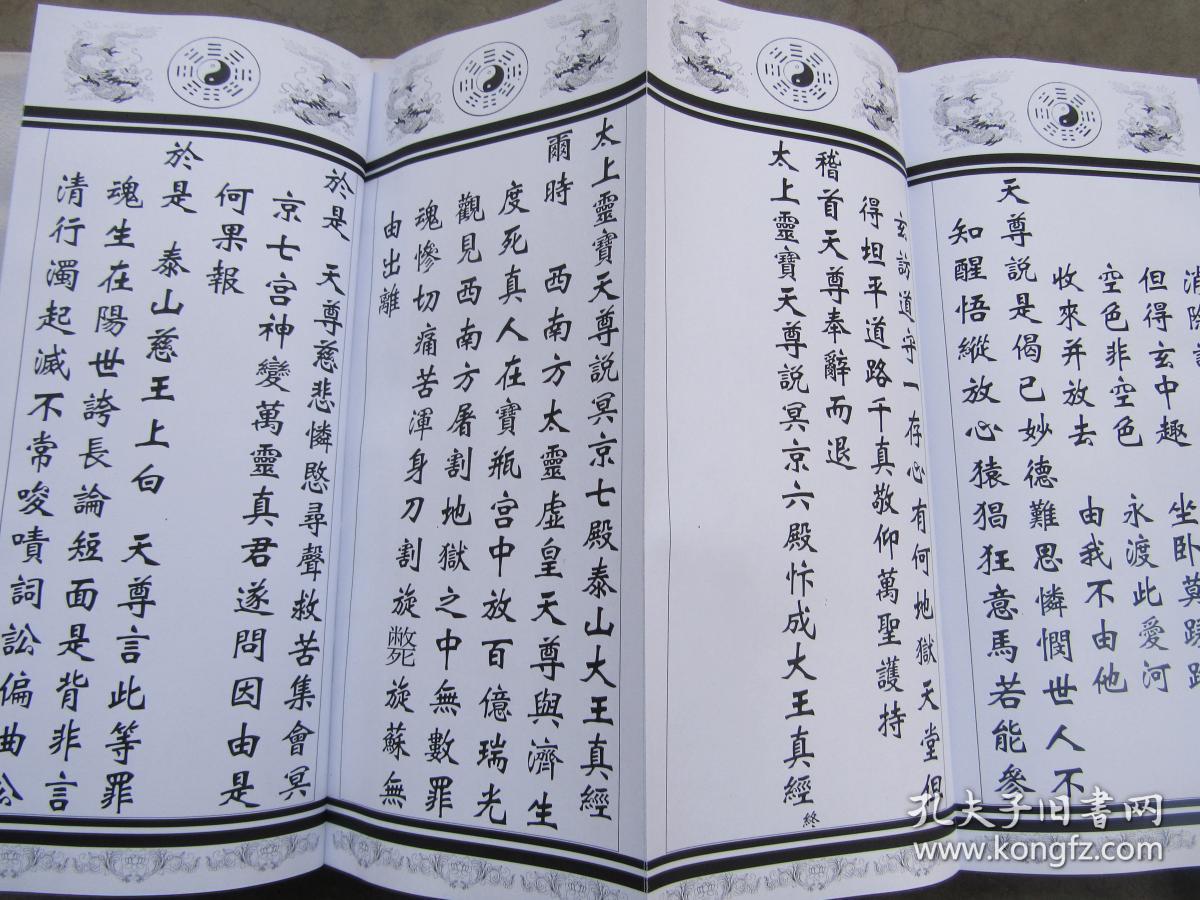 消除
但得玄中趣　坐卧莫蹉跎
空色非空色　永渡此愛河
收來并放去　由我不由他
天尊說是偈已妙德難思憐憫世人不
知醒悟縱放心猿猖狂意馬若能參
玄訪道守一存心有何地獄天堂俱
得坦平道路千真敬仰萬聖護持
稽首天尊奉辭而退
太上靈寶天尊說冥京六殿忭成大王真經終
太上靈寶天尊說冥京七殿泰山大王真經
爾時　西南方太靈虛皇天尊與濟生
度死真人在寶瓶宮中放百億瑞光
觀見西南方屠割地獄之中無數罪
魂慘切痛苦渾身刀割旋斃旋蘇無
由出離
於是　天尊慈悲憐愍尋聲救苦集會冥
京七宮神變萬靈真君遂問因由是
何果報
於是　泰山慈王上白　天尊言此等罪
魂生在陽世誇長論短面是背非言
清行濁起滅不常唆嘖詞訟偏曲公
孔夫子旧书网
www.kongfz.com